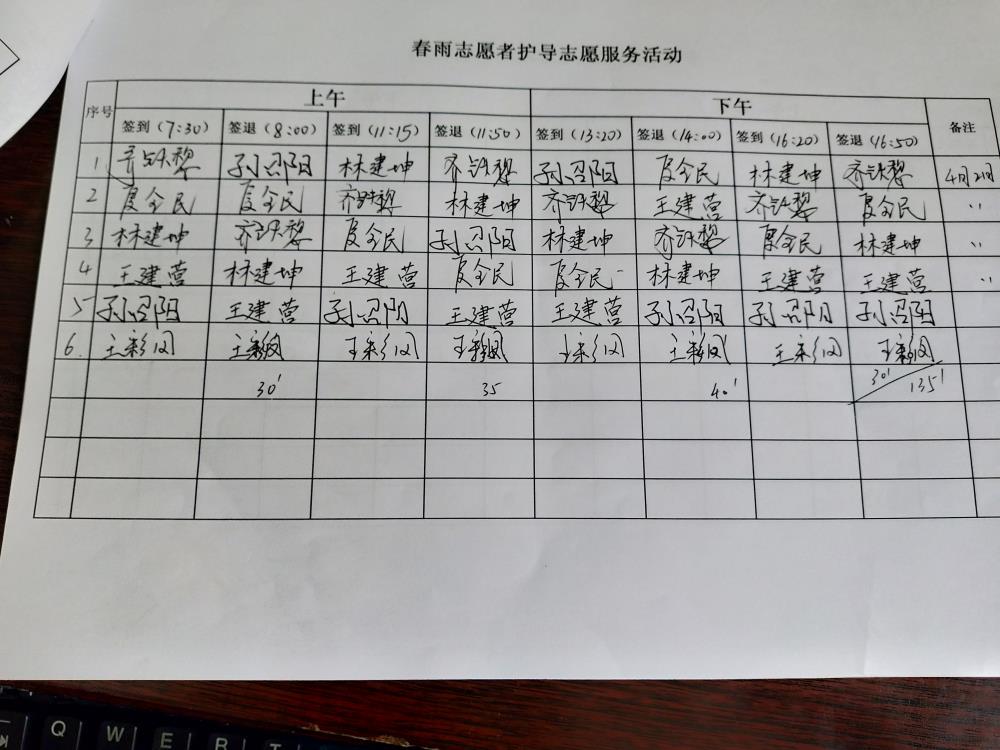 春雨志愿者护导志愿服务活动
序号 上午 下午 备注
签到(7:30) 签退(8:00) 签到(11:15) 签退(11:50) 签到(13:20) 签退(14:00) 签到(16:20) 签退(16:50)
1 齐铁黎 孙召阳 林建坤 齐铁黎 孙召阳 夏全民 林建坤 齐铁黎 4月21日
2 夏全民 夏全民 齐铁黎 林建坤 齐铁黎 王建营 齐铁黎 夏全民 ''
3 林建坤 齐铁黎 夏全民 孙召阳 林建坤 齐铁黎 夏全民 林建坤 ''
4 王建营 林建坤 王建营 夏全民 夏全民 林建坤 王建营 王建营 ''
5 孙召阳 王建营 孙召阳 王建营 王建营 孙召阳 孙召阳 孙召阳
6. 王彩凤 王彩凤 王彩凤 王彩凤 王彩凤 王彩凤 王彩凤 王彩凤
30' 35 40' 30' 135'
Q W E R T